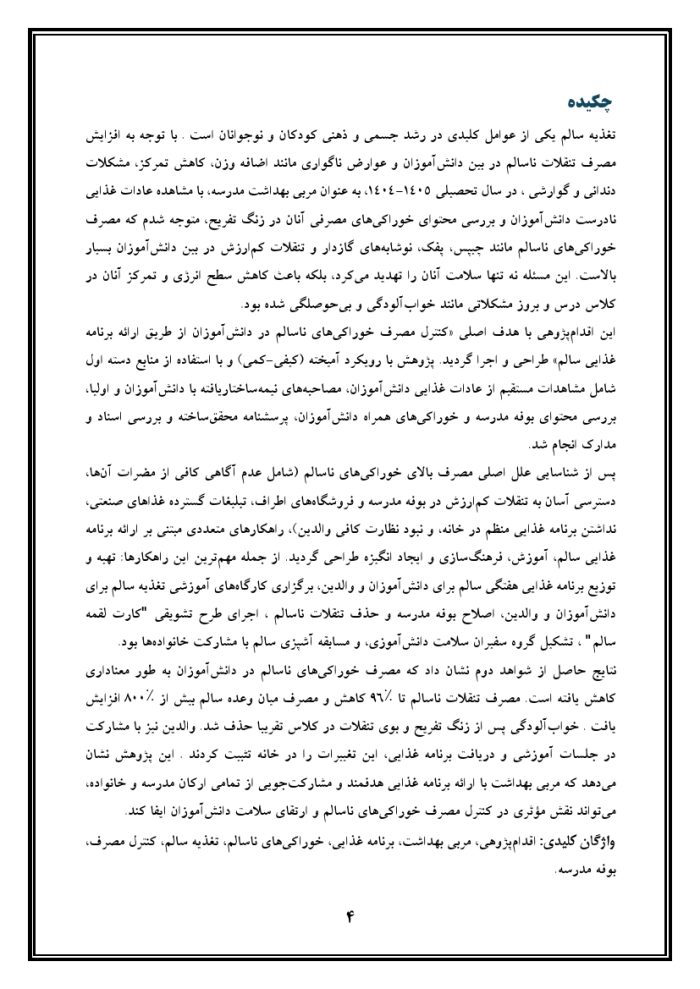 چکیده
تغذیه سالم یکی از عوامل کلیدی در رشد جسمی و ذهنی کودکان و نوجوانان است . با توجه به افزایش
مصرف تنقلات ناسالم در بین دانش‌آموزان و عوارض ناگواری مانند اضافه وزن، کاهش تمرکز، مشکلات
دندانی و گوارشی ، در سال تحصیلی ۱۴۰۵-۱۴۰۴، به عنوان مربی بهداشت مدرسه، با مشاهده عادات غذایی
نادرست دانش‌آموزان و بررسی محتوای خوراکی‌های مصرفی آنان در زنگ تفریح، متوجه شدم که مصرف
خوراکی‌های ناسالم مانند چیپس، پفک، نوشابه‌های گازدار و تنقلات کم‌ارزش در بین دانش‌آموزان بسیار
بالاست. این مسئله نه تنها سلامت آنان را تهدید می‌کرد، بلکه باعث کاهش سطح انرژی و تمرکز آنان در
کلاس درس و بروز مشکلاتی مانند خواب‌آلودگی و بی‌حوصلگی شده بود.
این اقدام‌پژوهی با هدف اصلی «کنترل مصرف خوراکی‌های ناسالم در دانش‌آموزان از طریق ارائه برنامه
غذایی سالم» طراحی و اجرا گردید. پژوهش با رویکرد آمیخته (کیفی-کمی) و با استفاده از منابع دسته اول
شامل مشاهدات مستقیم از عادات غذایی دانش‌آموزان، مصاحبه‌های نیمه‌ساختاریافته با دانش‌آموزان و اولیا،
بررسی محتوای بوفه مدرسه و خوراکی‌های همراه دانش‌آموزان، پرسشنامه محقق‌ساخته و بررسی اسناد و
مدارک انجام شد.
پس از شناسایی علل اصلی مصرف بالای خوراکی‌های ناسالم (شامل عدم آگاهی کافی از مضرات آن‌ها،
دسترسی آسان به تنقلات کم‌ارزش در بوفه مدرسه و فروشگاه‌های اطراف، تبلیغات گسترده غذاهای صنعتی،
نداشتن برنامه غذایی منظم در خانه، و نبود نظارت کافی والدین)، راهکارهای متعددی مبتنی بر ارائه برنامه
غذایی سالم، آموزش، فرهنگ‌سازی و ایجاد انگیزه طراحی گردید. از جمله مهم‌ترین این راهکارها: تهیه و
توزیع برنامه غذایی هفتگی سالم برای دانش‌آموزان و والدین، برگزاری کارگاه‌های آموزشی تغذیه سالم برای
دانش‌آموزان و والدین، اصلاح بوفه مدرسه و حذف تنقلات ناسالم ، اجرای طرح تشویقی "کارت لقمه
سالم" ، تشکیل گروه سفیران سلامت دانش‌آموزی، و مسابقه آشپزی سالم با مشارکت خانواده‌ها بود.
نتایج حاصل از شواهد دوم نشان داد که مصرف خوراکی‌های ناسالم در دانش‌آموزان به طور معناداری
کاهش یافته است. مصرف تنقلات ناسالم تا ۹۶٪ کاهش و مصرف میان وعده سالم بیش از ۸۰۰٪ افزایش
یافت . خواب‌آلودگی پس از زنگ تفریح و بوی تنقلات در کلاس تقریبا حذف شد. والدین نیز با مشارکت
در جلسات آموزشی و دریافت برنامه غذایی، این تغییرات را در خانه تثبیت کردند . این پژوهش نشان
می‌دهد که مربی بهداشت با ارائه برنامه غذایی هدفمند و مشارکت‌جویی از تمامی ارکان مدرسه و خانواده،
می‌تواند نقش مؤثری در کنترل مصرف خوراکی‌های ناسالم و ارتقای سلامت دانش‌آموزان ایفا کند.
واژگان کلیدی: اقدام‌پژوهی، مربی بهداشت، برنامه غذایی، خوراکی‌های ناسالم، تغذیه سالم، کنترل مصرف،
بوفه مدرسه.
۴